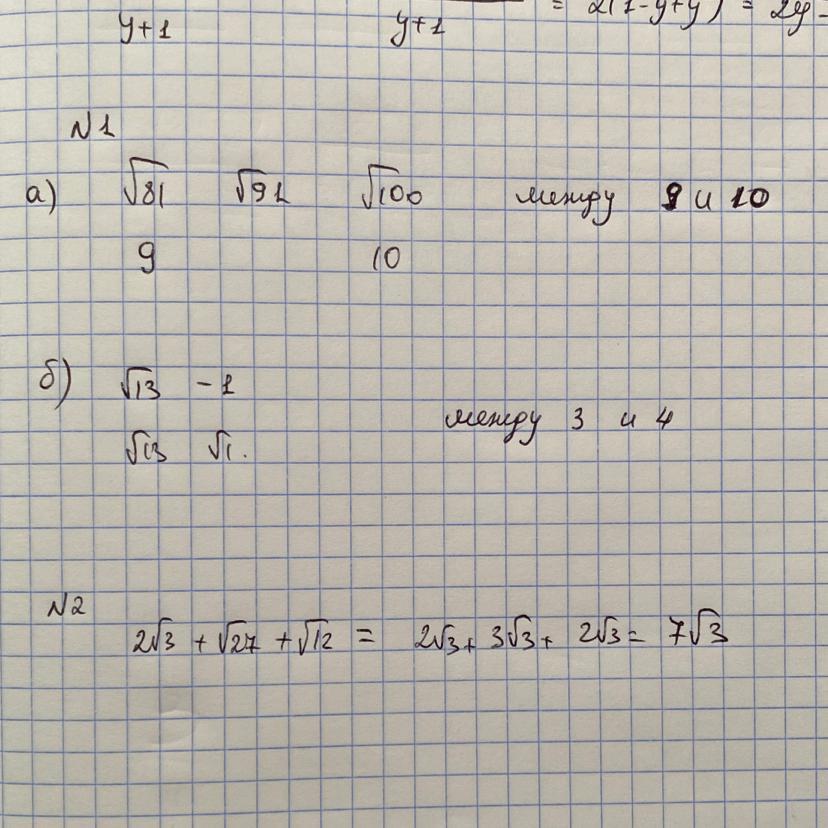 = 2(1-y+y) = 2y -
y+1 y+1
N1
а) √81 √91 √100 между 9 и 10
9 10
б) √13 - 1
между 3 и 4
√13 √1.
N2
2√3 + √27 + √12 = 2√3 + 3√3 + 2√3 = 7√3